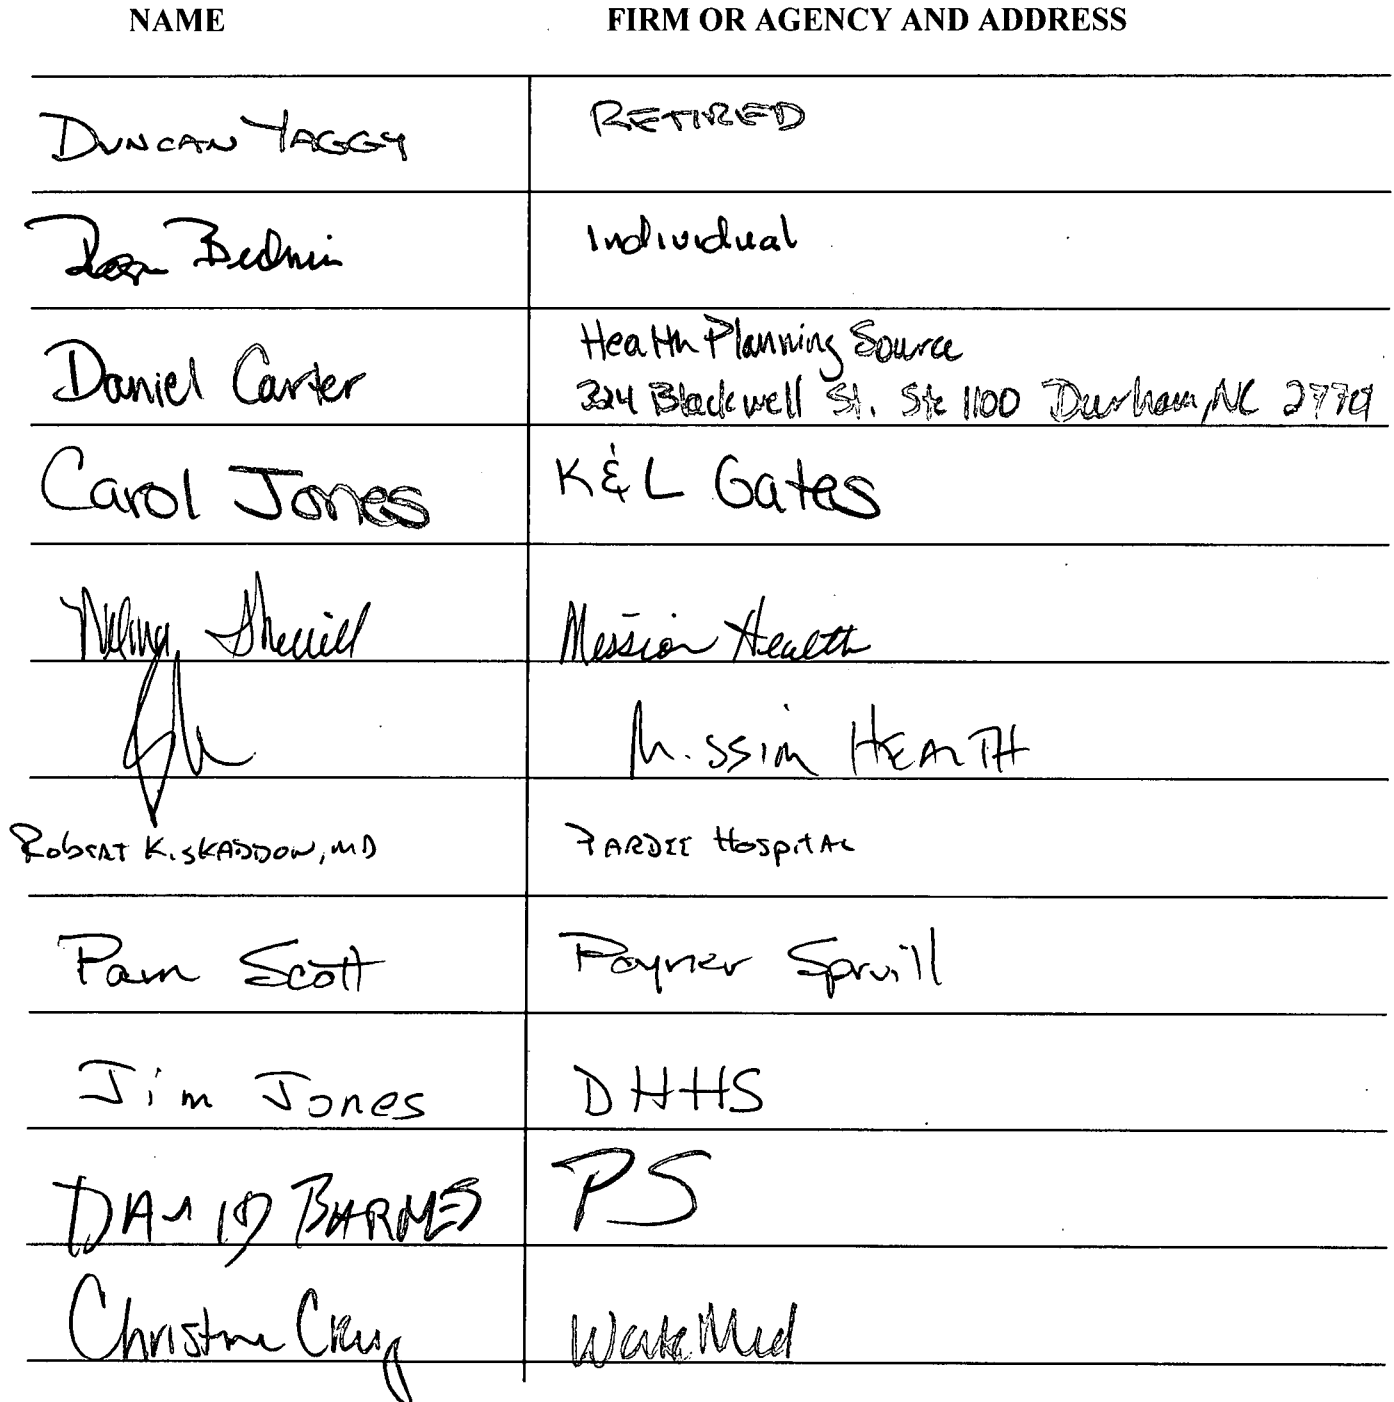 NAME FIRM OR AGENCY AND ADDRESS
DUNCAN YAGGY RETIRED
Individual
Daniel Carter Health Planning Source
324 Blackwell St. Ste 1100 Durham, NC 27701
Carol Jones K & L Gates
Sherrill Mission Health
Mission HEALTH
ROBERT K. SKADDON, MD PARDEE HOSPITAL
Pam Scott Poyner Spruill
Jim Jones DHHS
DAVID BARNES PS
Christine WakeMed